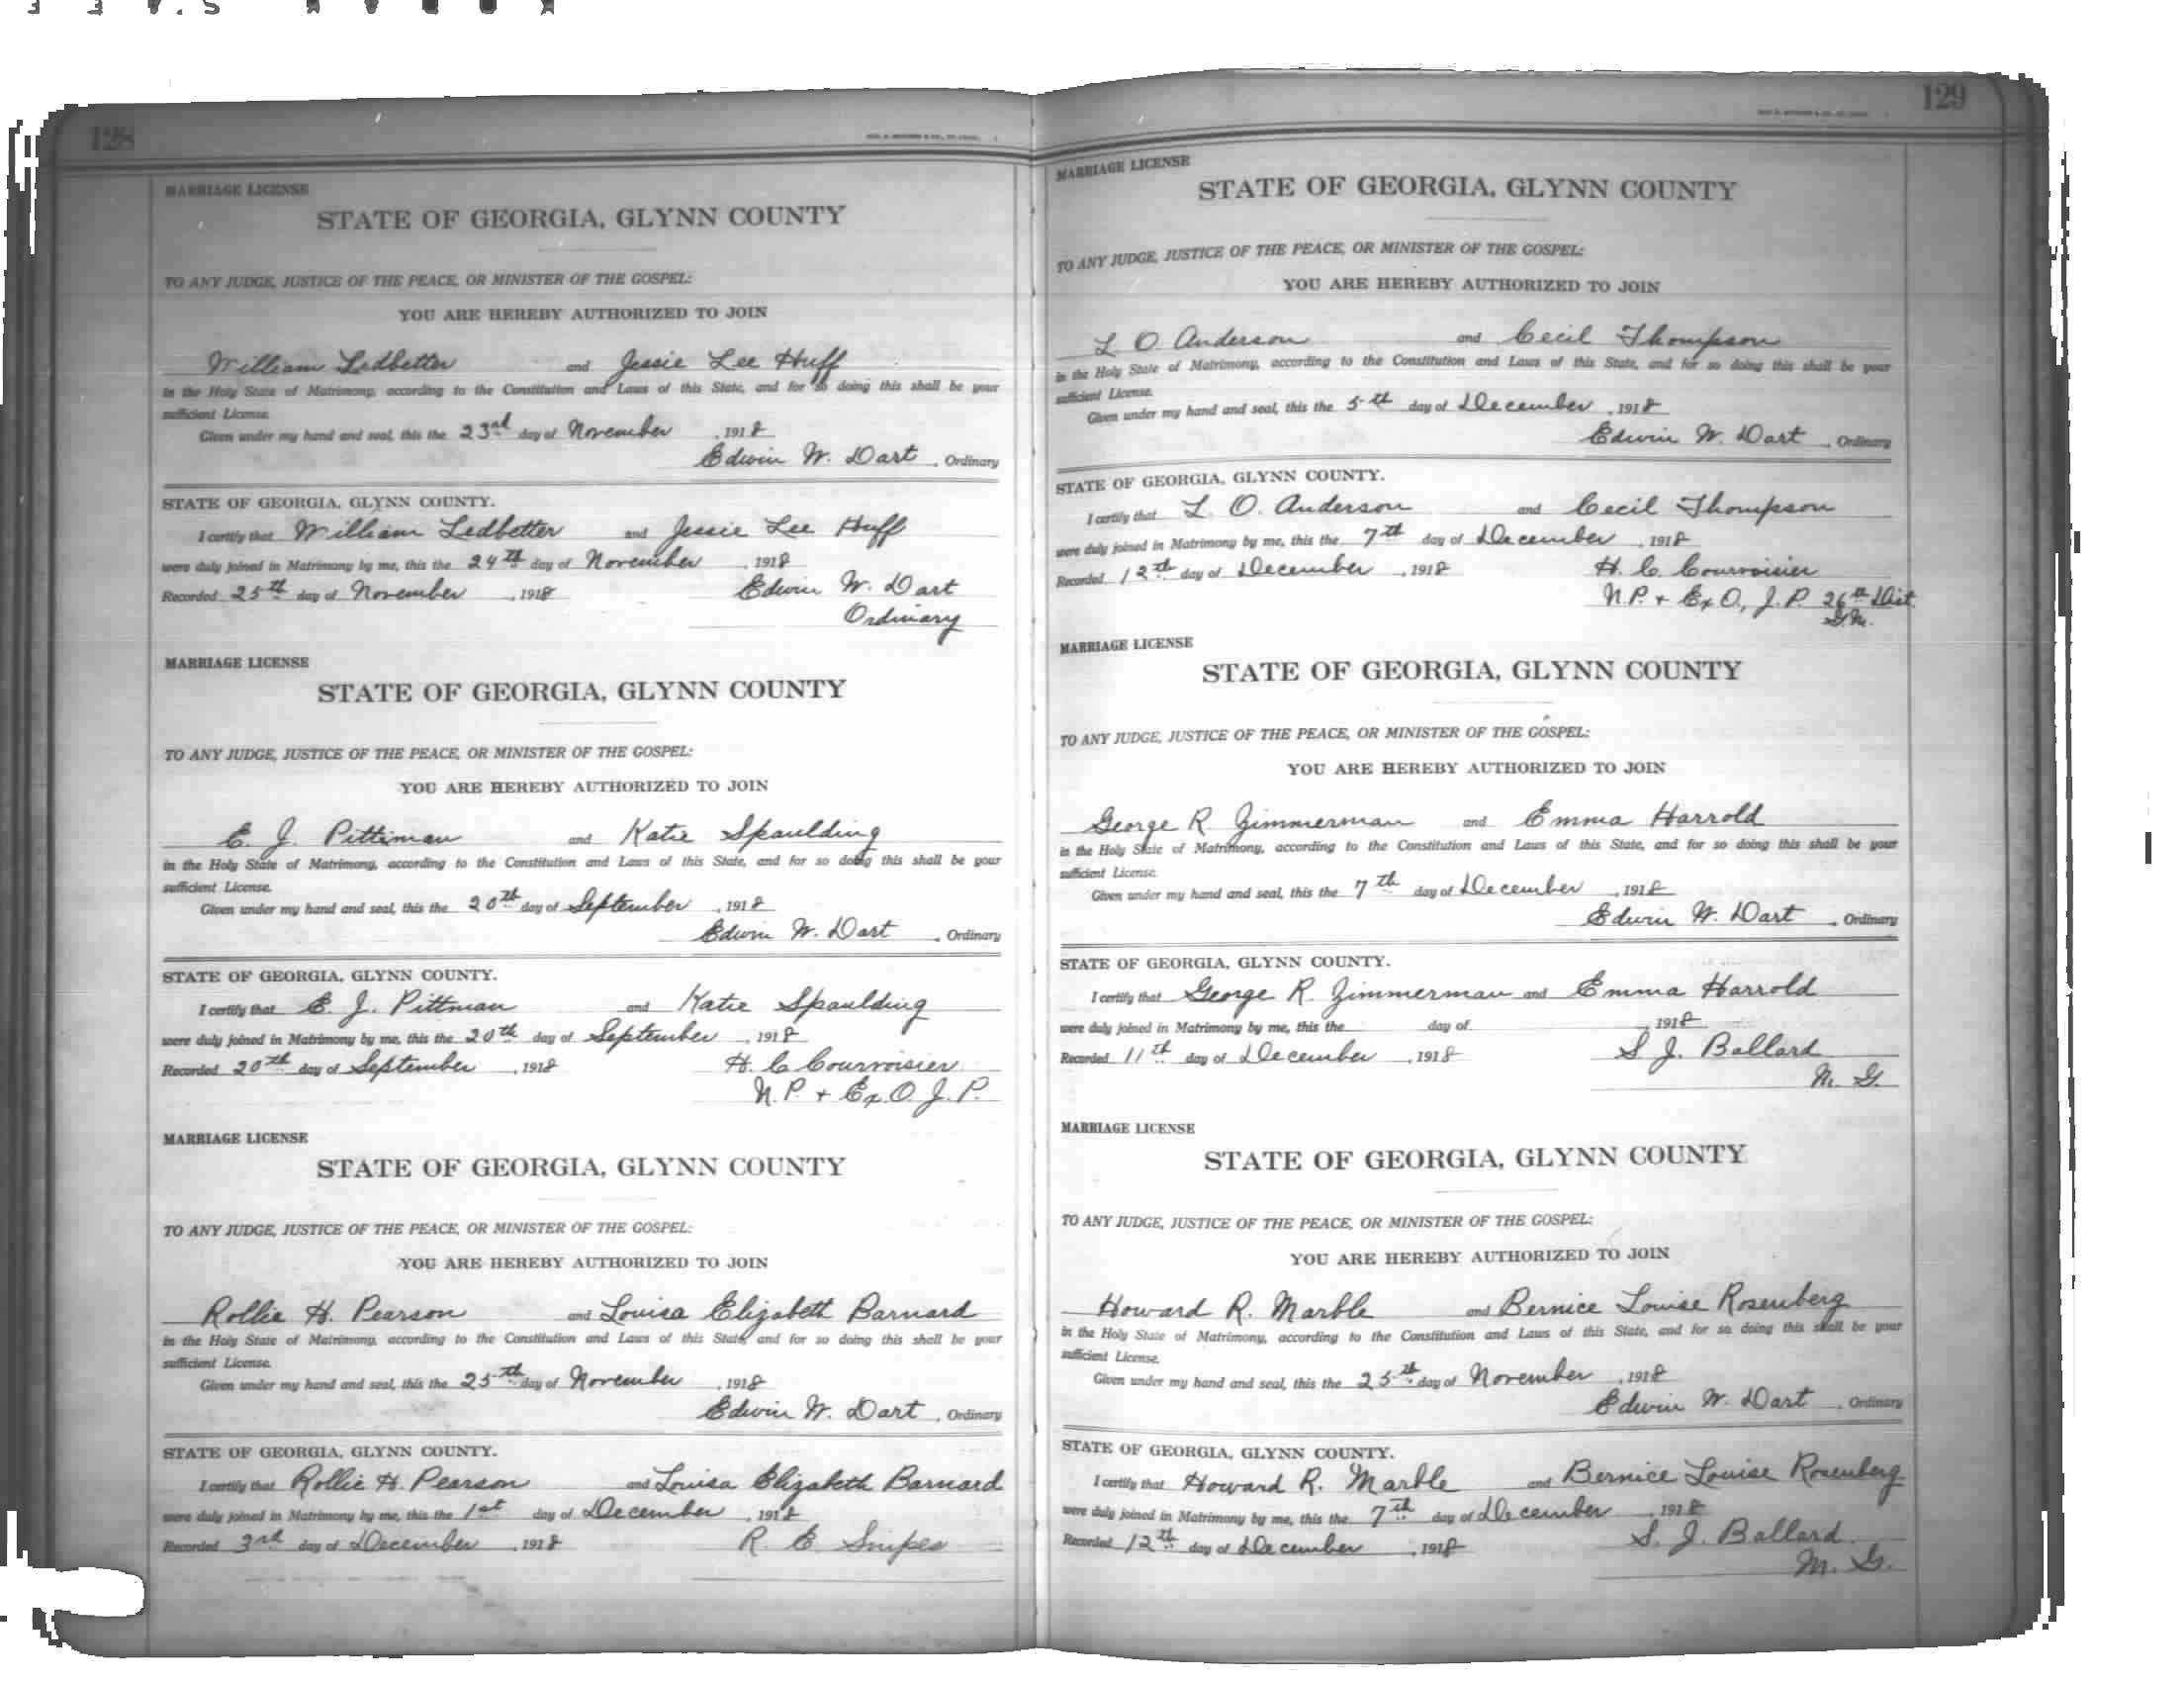 128
MARRIAGE LICENSE
STATE OF GEORGIA, GLYNN COUNTY
TO ANY JUDGE, JUSTICE OF THE PEACE, OR MINISTER OF THE GOSPEL:
YOU ARE HEREBY AUTHORIZED TO JOIN
William Ledbetter and Jessie Lee Huff
in the Holy State of Matrimony, according to the Constitution and Laws of this State, and for so doing this shall be your
sufficient License.
Given under my hand and seal, this the 23rd day of November, 1918
Edwin W. Dart, Ordinary
STATE OF GEORGIA, GLYNN COUNTY.
I certify that William Ledbetter and Jessie Lee Huff
were duly joined in Matrimony by me, this the 24th day of November, 1918
Recorded 25th day of November, 1918 Edwin W. Dart
Ordinary
MARRIAGE LICENSE
STATE OF GEORGIA, GLYNN COUNTY
TO ANY JUDGE, JUSTICE OF THE PEACE, OR MINISTER OF THE GOSPEL:
YOU ARE HEREBY AUTHORIZED TO JOIN
E. J. Pittman and Katie Spaulding
in the Holy State of Matrimony, according to the Constitution and Laws of this State, and for so doing this shall be your
sufficient License.
Given under my hand and seal, this the 20th day of September, 1918
Edwin W. Dart, Ordinary
STATE OF GEORGIA, GLYNN COUNTY.
I certify that E. J. Pittman and Katie Spaulding
were duly joined in Matrimony by me, this the 20th day of September, 1918
Recorded 20th day of September, 1918 H. C Courvoisier
N. P. + Ex. O. J. P.
MARRIAGE LICENSE
STATE OF GEORGIA, GLYNN COUNTY
TO ANY JUDGE, JUSTICE OF THE PEACE, OR MINISTER OF THE GOSPEL:
YOU ARE HEREBY AUTHORIZED TO JOIN
Rollie H. Pearson and Louisa Elizabeth Barnard
in the Holy State of Matrimony, according to the Constitution and Laws of this State, and for so doing this shall be your
sufficient License.
Given under my hand and seal, this the 25th day of November, 1918
Edwin W. Dart, Ordinary
STATE OF GEORGIA, GLYNN COUNTY.
I certify that Rollie H. Pearson and Louisa Elizabeth Barnard
were duly joined in Matrimony by me, this the 1st day of December, 1918
Recorded 3rd day of December, 1918 R. E Snipes
129
MARRIAGE LICENSE
STATE OF GEORGIA, GLYNN COUNTY
TO ANY JUDGE, JUSTICE OF THE PEACE, OR MINISTER OF THE GOSPEL:
YOU ARE HEREBY AUTHORIZED TO JOIN
L O. Anderson and Cecil Thompson
in the Holy State of Matrimony, according to the Constitution and Laws of this State, and for so doing this shall be your
sufficient License.
Given under my hand and seal, this the 5th day of December, 1918
Edwin W. Dart, Ordinary
STATE OF GEORGIA, GLYNN COUNTY.
I certify that L. O. Anderson and Cecil Thompson
were duly joined in Matrimony by me, this the 7th day of December, 1918
Recorded 12th day of December, 1918 H. C. Courvoisier
N.P. + Ex O, J. P. 26th Dist.
G.M.
MARRIAGE LICENSE
STATE OF GEORGIA, GLYNN COUNTY
TO ANY JUDGE, JUSTICE OF THE PEACE, OR MINISTER OF THE GOSPEL:
YOU ARE HEREBY AUTHORIZED TO JOIN
George R. Zimmerman and Emma Harrold
in the Holy State of Matrimony, according to the Constitution and Laws of this State, and for so doing this shall be your
sufficient License.
Given under my hand and seal, this the 7th day of December, 1918
Edwin W. Dart, Ordinary
STATE OF GEORGIA, GLYNN COUNTY.
I certify that George R. Zimmerman and Emma Harrold
were duly joined in Matrimony by me, this the day of , 1918
Recorded 11th day of December, 1918 S J. Ballard
M. G.
MARRIAGE LICENSE
STATE OF GEORGIA, GLYNN COUNTY
TO ANY JUDGE, JUSTICE OF THE PEACE, OR MINISTER OF THE GOSPEL:
YOU ARE HEREBY AUTHORIZED TO JOIN
Howard R. Marble and Bernice Louise Rosenberg
in the Holy State of Matrimony, according to the Constitution and Laws of this State, and for so doing this shall be your
sufficient License.
Given under my hand and seal, this the 25th day of November, 1918
Edwin W. Dart, Ordinary
STATE OF GEORGIA, GLYNN COUNTY.
I certify that Howard R. Marble and Bernice Louise Rosenberg
were duly joined in Matrimony by me, this the 7th day of December, 1918
Recorded 12th day of December, 1918 S. J. Ballard
M. G.